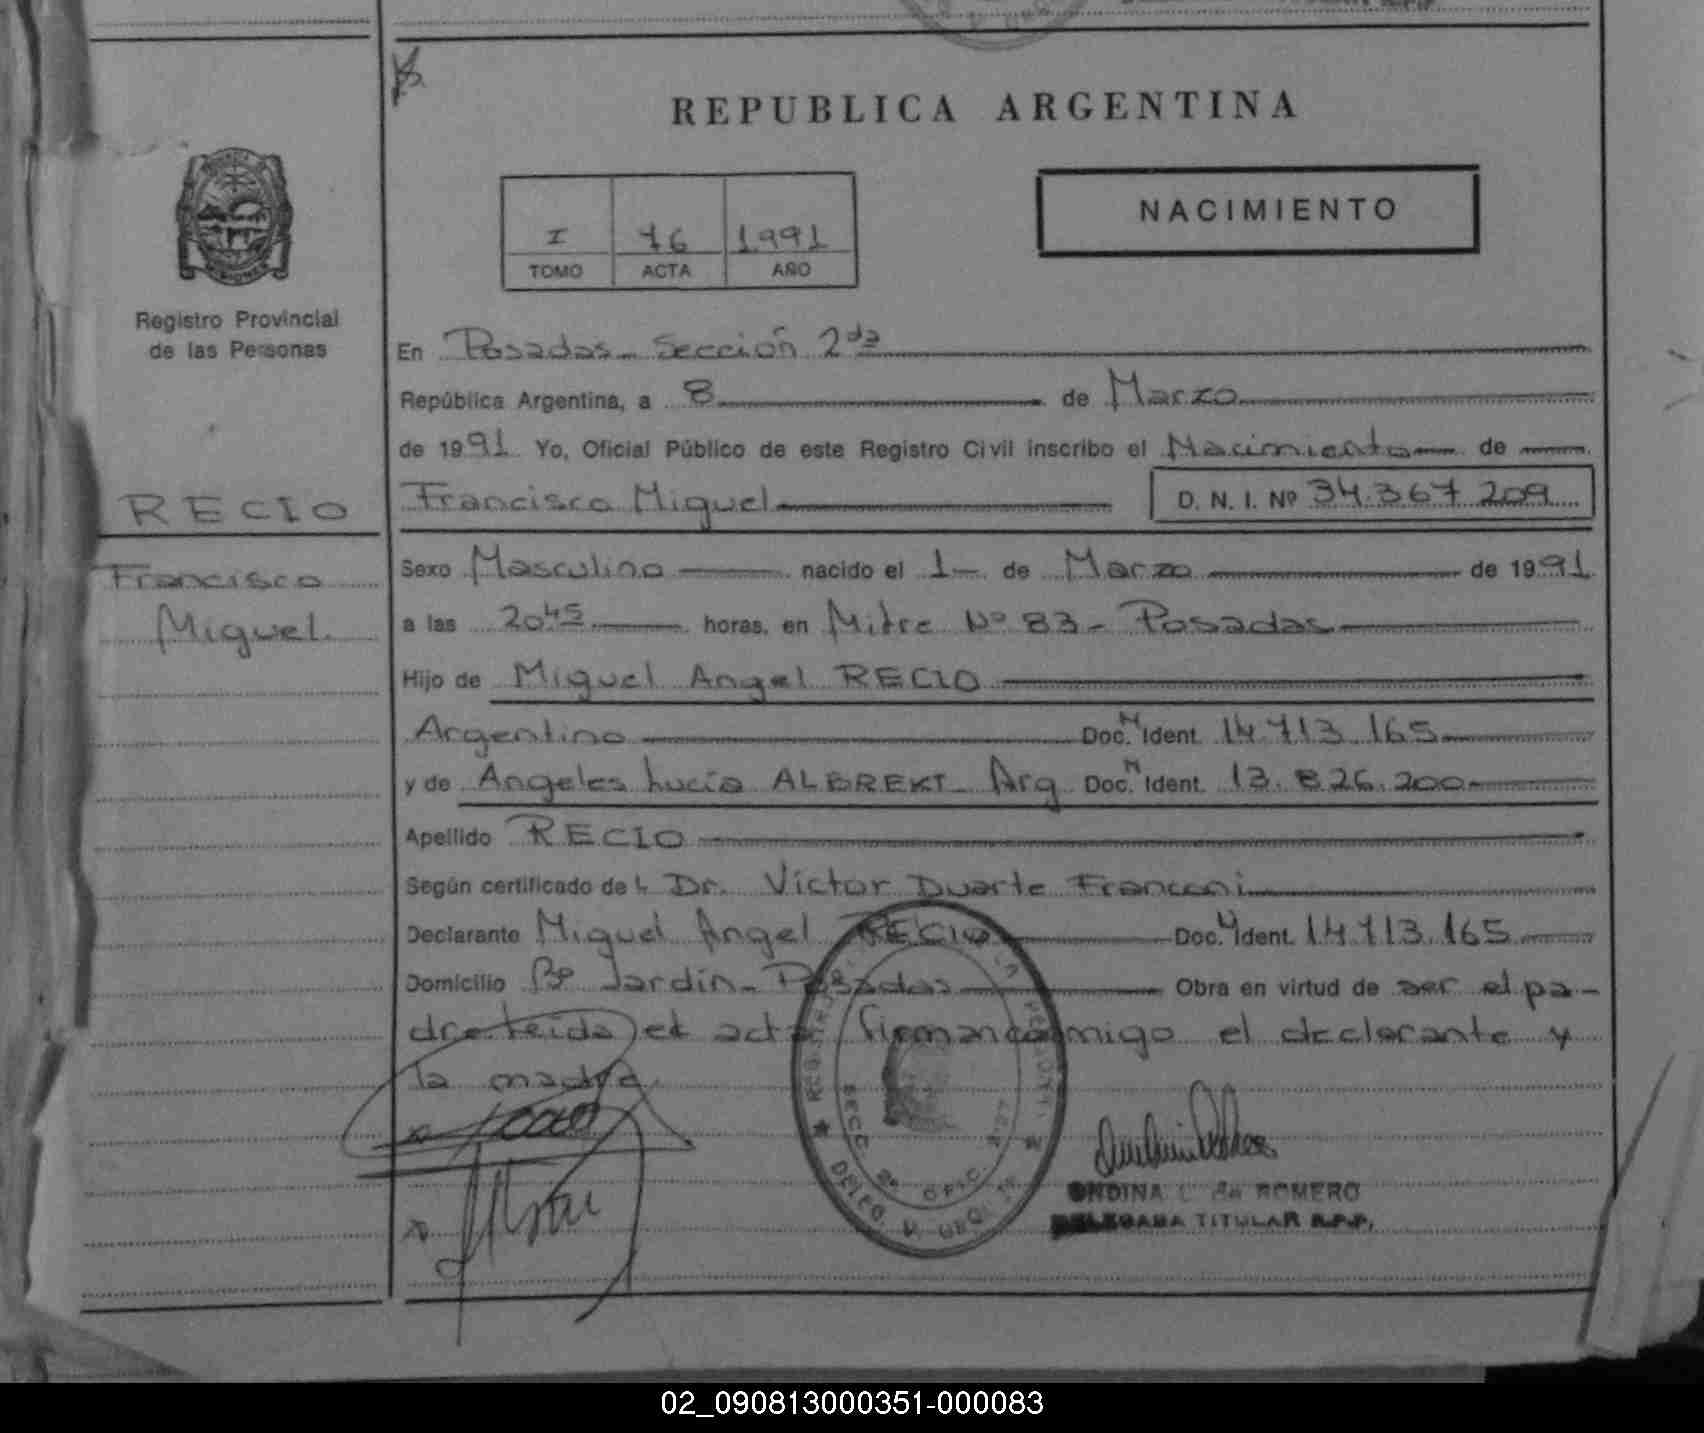 REPUBLICA ARGENTINA
NACIMIENTO
I 76 1991
TOMO ACTA AÑO
Registro Provincial
de las Personas
RECIO
Francisco
Miguel
En Posadas - Sección 2da
República Argentina, a 8 de Marzo
de 1991 Yo, Oficial Público de este Registro Civil inscribo el Nacimiento de
Francisco Miguel D. N. I. Nº 34.367.209
Sexo Masculino nacido el 1 de Marzo de 1991
a las 20 45 horas, en Mitre Nº 83 - Posadas
Hijo de Miguel Angel RECIO
Argentino Doc. N Ident. 14.713.165
y de Angeles Lucía ALBREKT - Arg. Doc. N Ident. 13.826.200
Apellido RECIO
Según certificado del Dr. Víctor Duarte Franconi
Declarante Miguel Angel RECIO Doc. N Ident. 14.713.165
Domicilio Bº Jardín - Posadas Obra en virtud de ser el pa-
dre leída el acta firman conmigo el declarante y
la madre
REGISTRO DE LAS PERSONAS
SECC. 2ª OFIC.
DELEG.
ONDINA L. de ROMERO
DELEGADA TITULAR R.P.P.
02_090813000351-000083